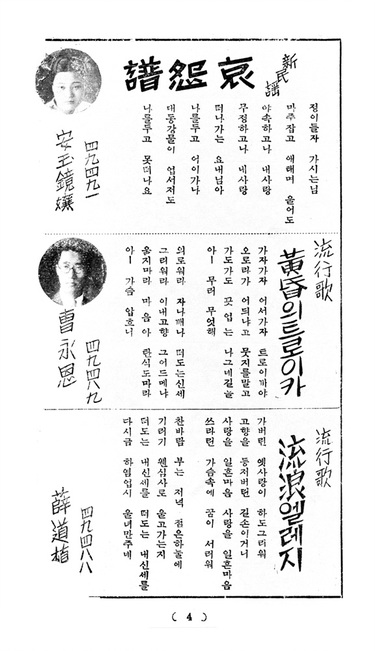 新民謠
哀怨譜
정이들자 가시는님
마주잡고 애해며 울어도
야속하고나 내사랑
무정하고나 네사랑
떠나가는 요내님아
나를두고 어이가나
대동강물이 업서저도
나를두고 못떠나요
四九四九一
安玉鏡孃
流行歌
黃昏의트로이카
가자가자 어서가자 트로이카야
오로라가 어듸냐고 뭇지를말고
가도가도 끗업는 나그네길을
아ー 무러 무엇해
의로워라 자나깨나 떠도는신세
그리워라 이내고향 그어드메냐
울지마라 마음아 란식도마라
아ー 가슴 압흐니
四九四八九
曺永恩
流行歌
流浪엘레지
가버린 옛사랑이 하도그리워
고향을 등저버린 길손이거니
사랑을 일흔마음 사랑을 일흔마음
쓰라린 가슴속에 꿈이 서러워
찬바람 부는 저녁 점은하눌에
기러기 웬심사로 울고가는지
떠도는 내신세를 떠도는 내신세를
다시금 하염업시 울녀만주네
四九四八八
薛道植
( 4 )